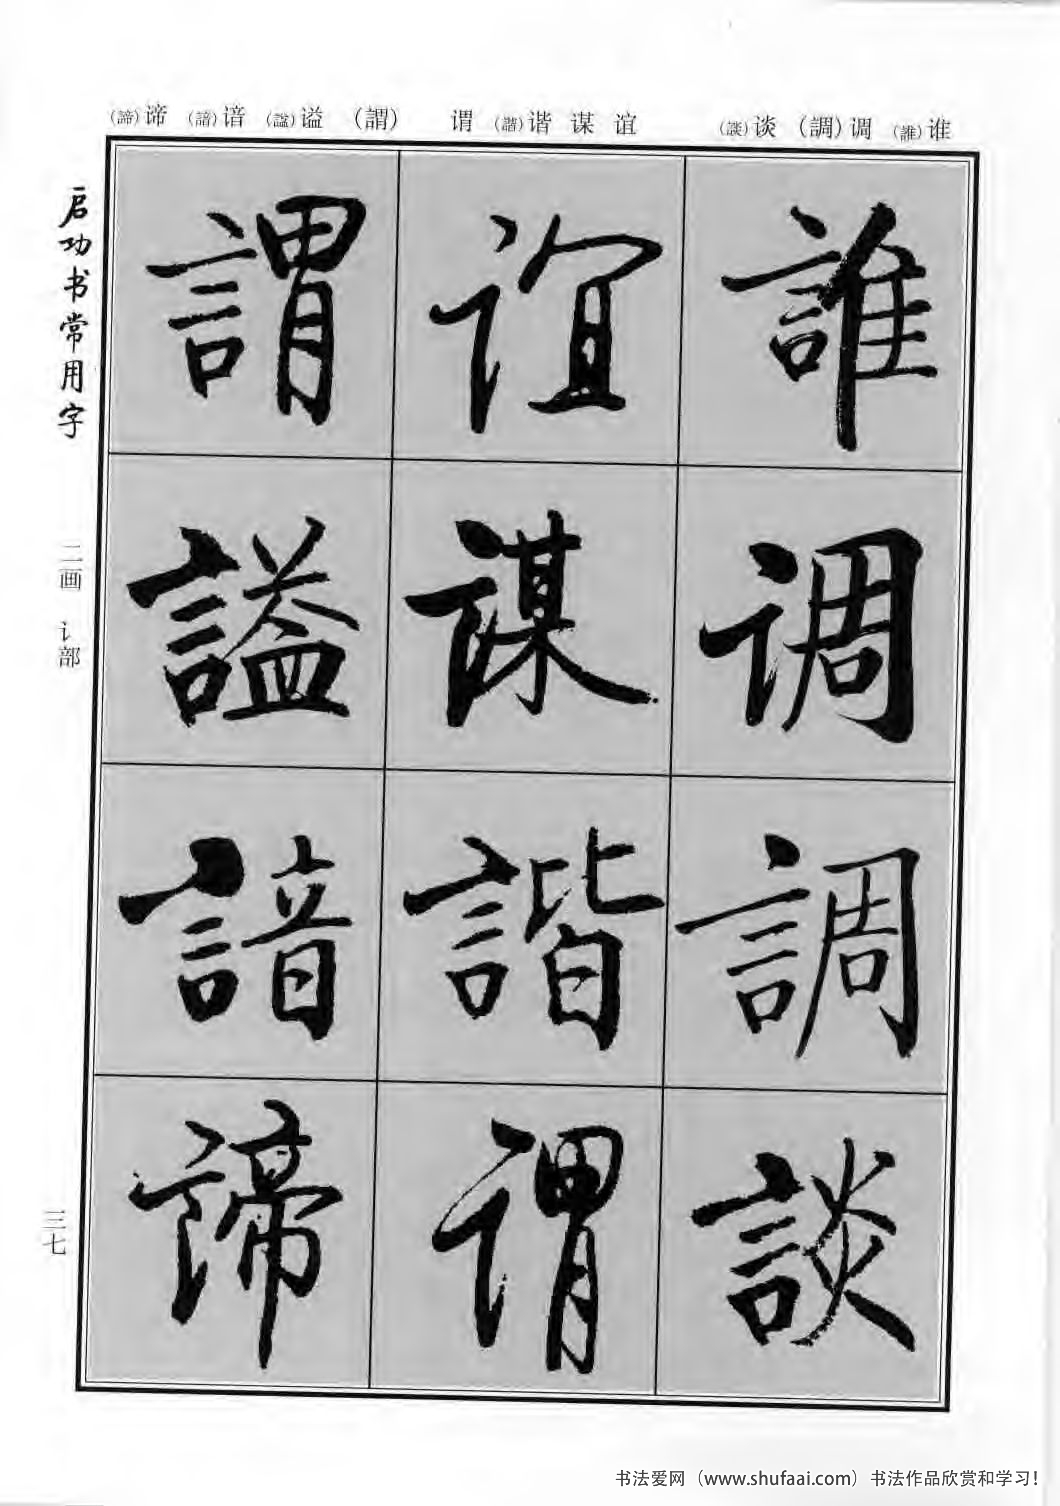 谁(誰) 调(調) 谈(談)
谊 谋 谐(諧) 谓
(謂) 谥(謚) 谙(諳) 谛(諦)
誰
调
調
談
谊
谋
諧
谓
謂
謚
諳
谛
启功书常用字
二画 讠部
三七
书法爱网（www.shufaai.com）书法作品欣赏和学习!